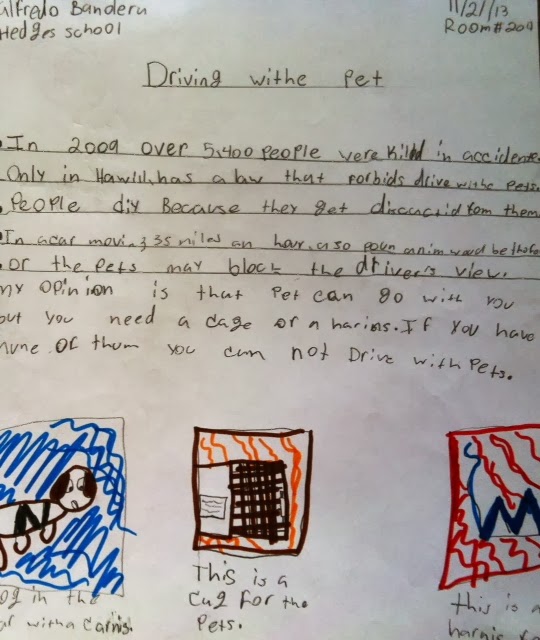 Alfredo Banderu 11/21/13
Hedges school Room#204
Driving withe Pet
•In 2009 over 5,400 People vere Killd in accidente
Only in Hawill, has a law that forbids drive withe Pets.
•People diy Because they get
•In a car moving 35 miles an hour, a 50 poun anim woud be
•or the Pets may block the driver's view.
my opinion is that Pet can go with you
but you need a cage or a harins. If you have
nune of thum you can not Drive with Pets.
dog in the
car with a Carnis.
This is a
cug for the
Pets.
this is a
harnis